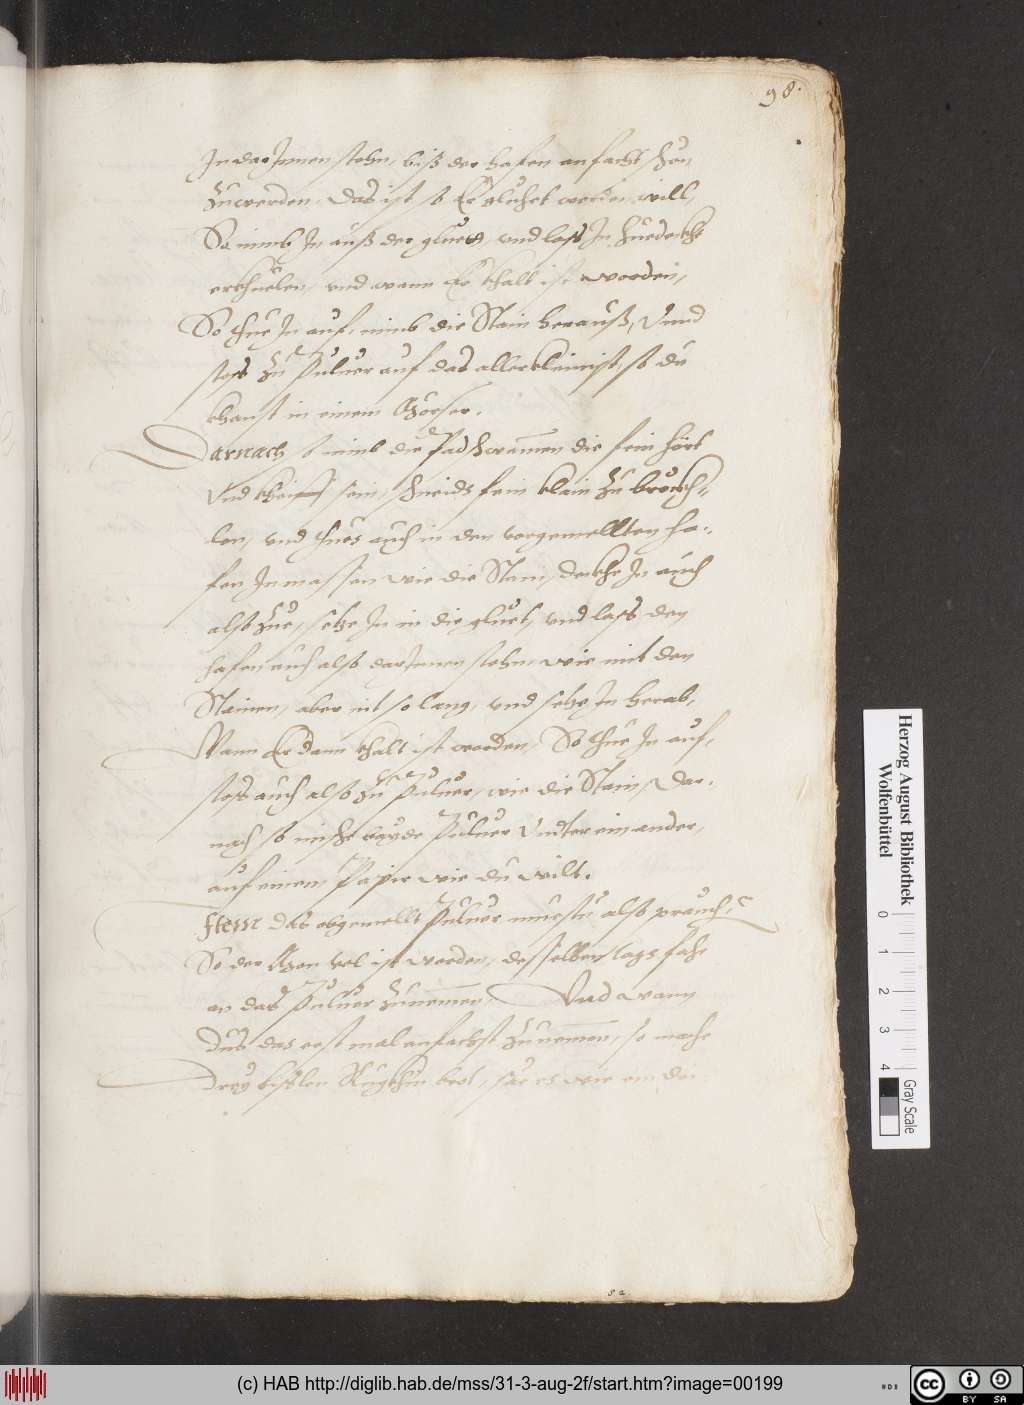 98.
In dar Innen stehn, biß der hafen anfacht schön
Zuwerden, Das ist so Er gluhet werden will,
So nimb In auß der gluet, vnd lass In Zuedeckht
erkhuelen, vnd wann Er khalt ist worden,
So thue In auf, nimb die Stain herauß, Vnnd
stoß Zu Puluer auf das allerklainist, so du
khanst in einem Mörser.
Darnach so nimb die Padschwammen die fein hört
Vnd sein, schneids fein klain Zu bröckh-
len, vnd thues auch in den vorgemellten ha-
fen Inmassen wie die Stain, deckhe In auch
also Zue, setze In in die gluet, vnd lass den
hafen auch also dar Innen stehn, wie mit den
Stainen, aber nit so lang, vnd setze In herab,
Wann Er dann khalt ist worden, So thue In auf,
stoß auch also Zu Puluer, wie die Stain, Dar-
nach so mische bayde Puluer Vndter einander,
auf einem Papir wie du wilt.
Item das obgemellt Puluer muestu also prauch:
So der Mon vol ist worden, desselben tags fahe
an das Puluer Zunemmen, Vnd wann
Dus das erst mal anfachst Zunemmen, so mache
Drey bißlen brot, säe es wie ein
Herzog August Bibliothek
Wolfenbüttel
0 1 2 3 4
Gray Scale
(c) HAB http://diglib.hab.de/mss/31-3-aug-2f/start.htm?image=00199
cc BY SA